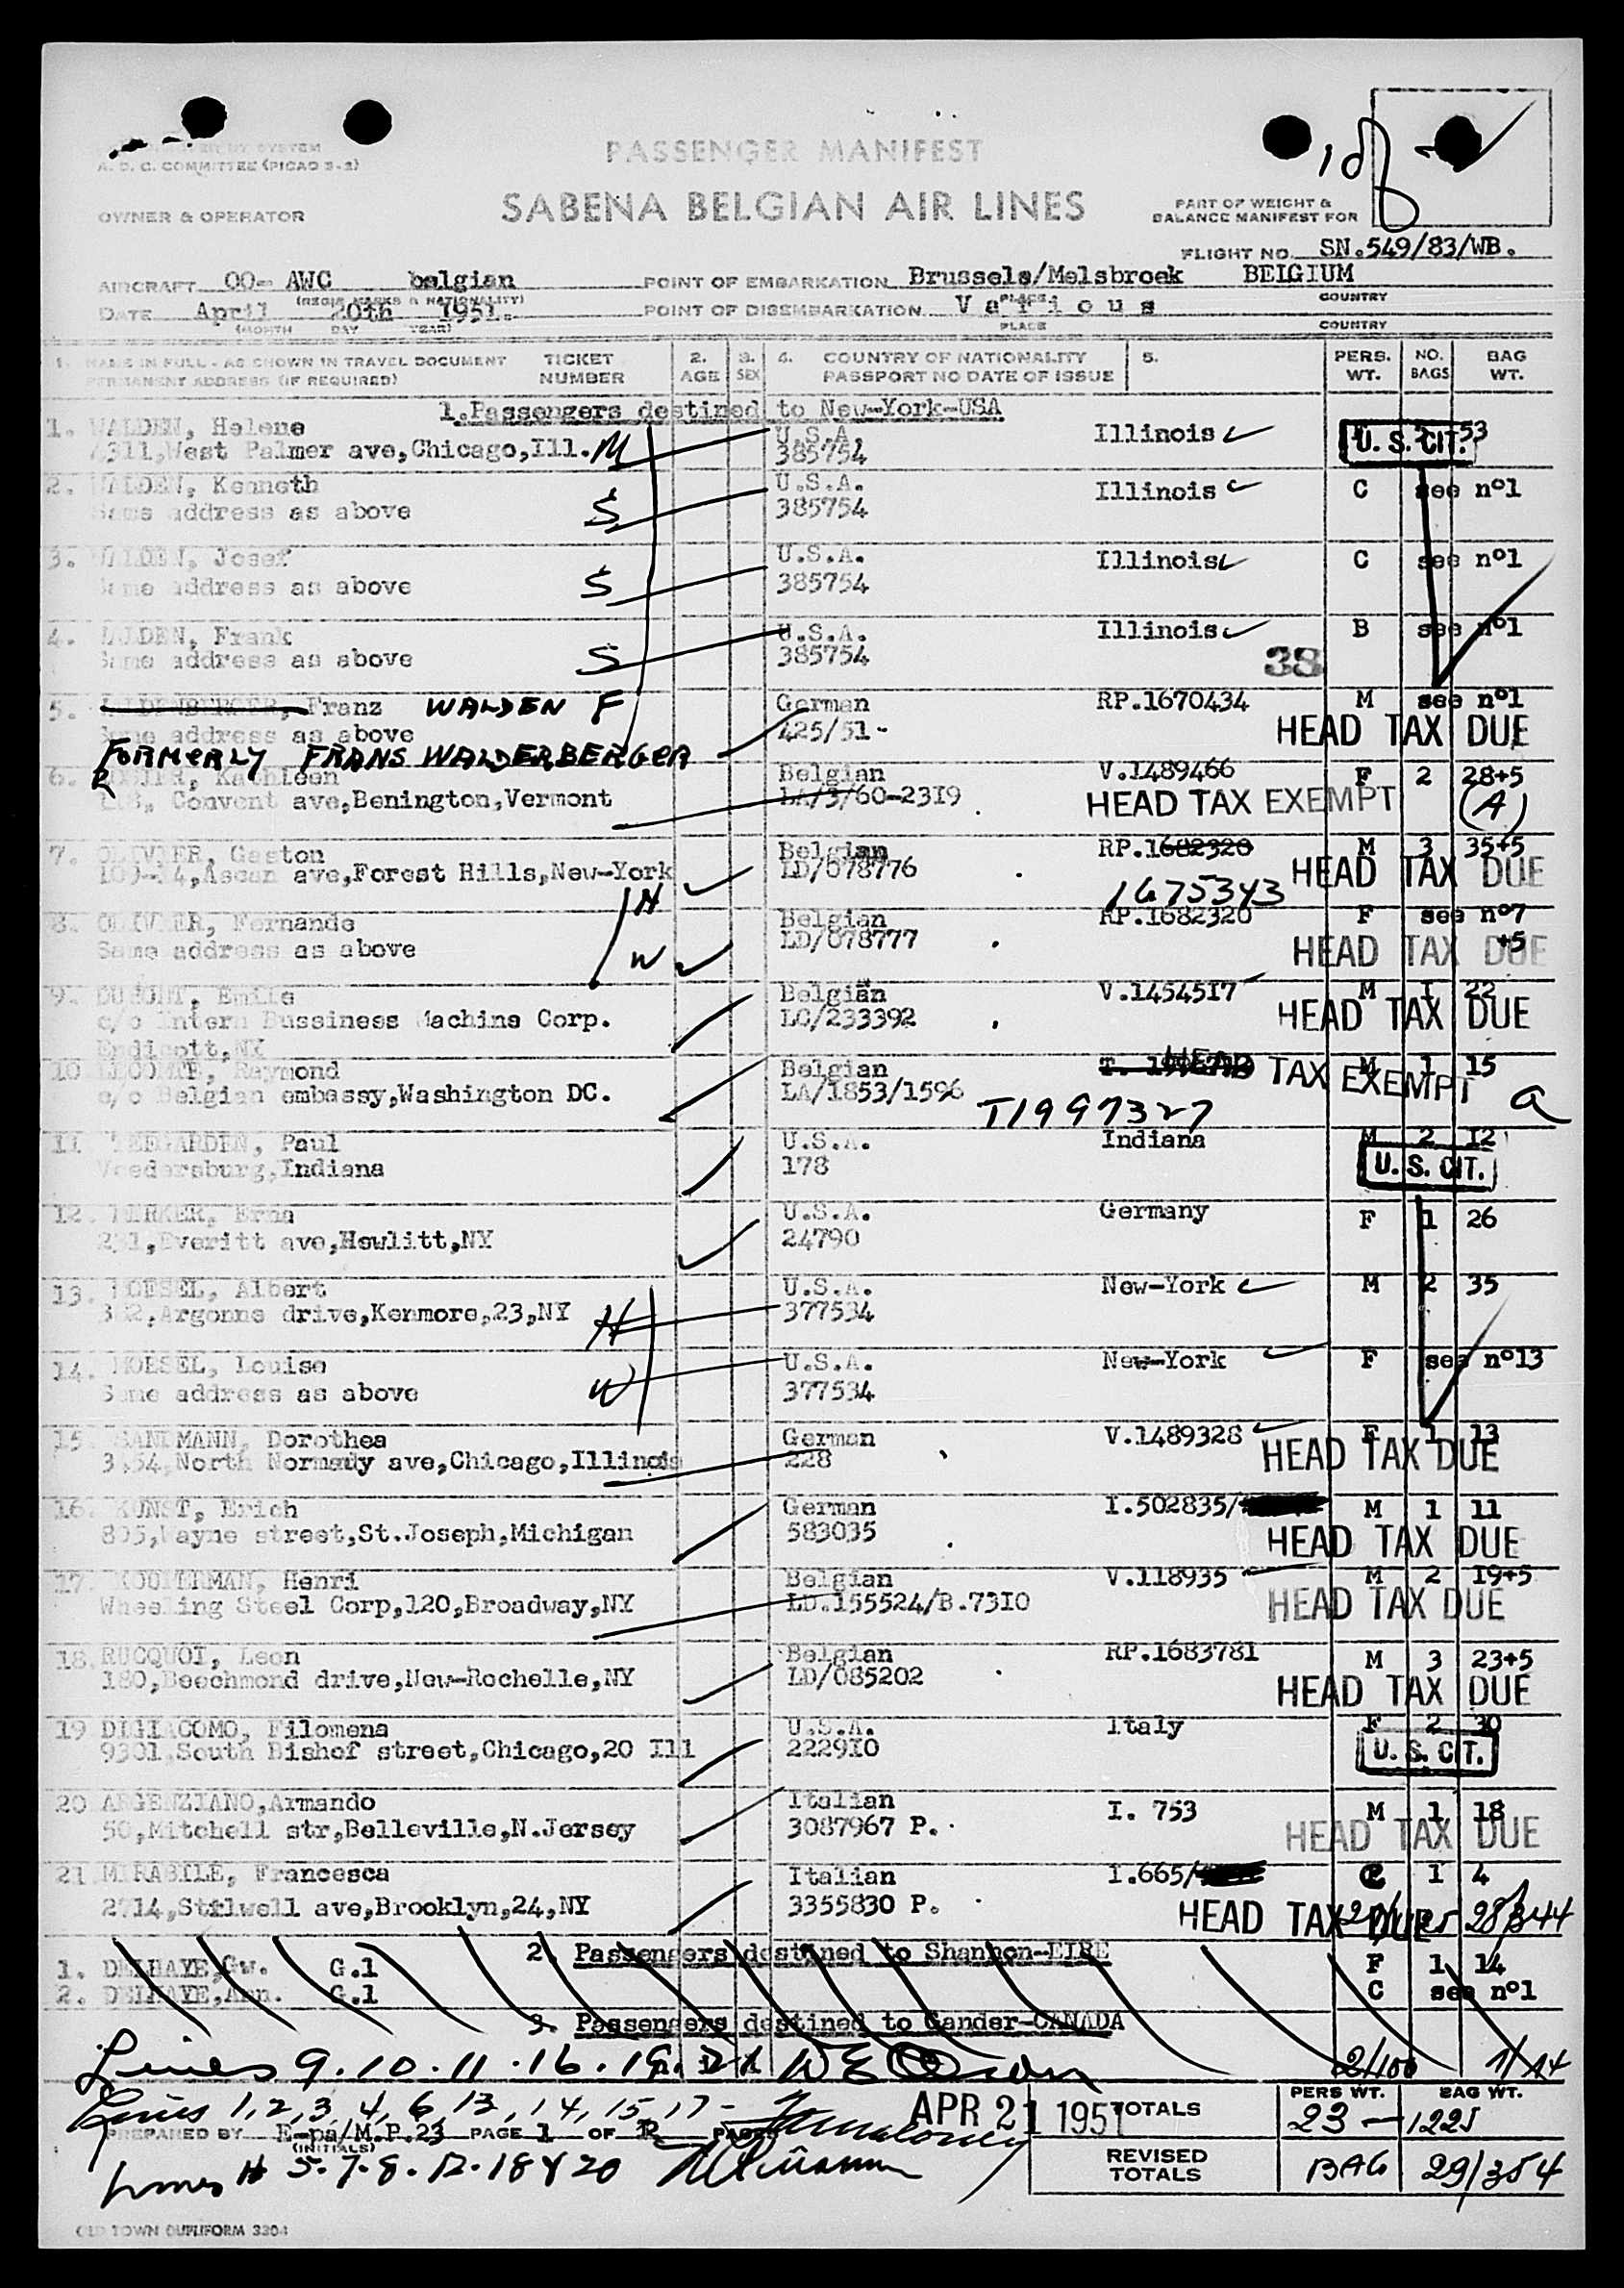 A.D.C. COMMITTEE (PICAO 3-2)
PASSENGER MANIFEST
OWNER & OPERATOR
SABENA BELGIAN AIR LINES
PART OF WEIGHT &
BALANCE MANIFEST FOR
FLIGHT NO. SN.549/83/WB.
AIRCRAFT OO- AWC belgian POINT OF EMBARKATION Brussels/Melsbroek BELGIUM
(REGIS MARKS & NATIONALITY) PLACE COUNTRY
DATE April 20th 1951. POINT OF DISEMBARKATION Various
(MONTH DAY YEAR) PLACE COUNTRY
1. NAME IN FULL - AS SHOWN IN TRAVEL DOCUMENT TICKET 2. 3. 4. COUNTRY OF NATIONALITY 5. PERS. NO. BAG
PERMANENT ADDRESS (IF REQUIRED) NUMBER AGE SEX PASSPORT NO DATE OF ISSUE WT. BAGS WT.
1.Passengers destined to New-York-USA
1. WALDEN, Helene U.S.A. Illinois U. S. CIT. 53
4311,West Palmer ave,Chicago,Ill. M 385754
2. WALDEN, Kenneth U.S.A. Illinois C see n°1
Same address as above S 385754
3. WALDEN, Josef U.S.A. Illinois C see n°1
Same address as above S 385754
4. WALDEN, Frank U.S.A. Illinois B see n°1
Same address as above S 385754 38
5. WALDENBERGER, Franz WALDEN F German RP.1670434 M see n°1
Same address as above 425/51- HEAD TAX DUE
FORMERLY FRANS WALDERBERGER
6. Kathleen Belgian V.1489466 F 2 28+5
Convent ave,Benington,Vermont LA/3/60-2319 HEAD TAX EXEMPT (A)
7. OLIVIER, Gaston Belgian RP.1682320 M 3 35+5
109-14,Ascan ave,Forest Hills,New-York LD/078776 1675343 HEAD TAX DUE
H
8. OLIVIER, Fernande Belgian RP.1682320 F see n°7
Same address as above W LD/078777 +5 HEAD TAX DUE
9. DUMONT, Emile Belgian V.1454517 M 1 22
c/o Intern Bussiness Machine Corp. LC/233392 HEAD TAX DUE
Endicott,NY
10 LECOMTE, Raymond Belgian M 1 15
c/o Belgian embassy,Washington DC. LA/1853/1596 T1997327 HEAD TAX EXEMPT a
11 TEEGARDEN, Paul U.S.A. Indiana M 2 12
Veedersburg,Indiana 178 U. S. CIT.
12. Erna U.S.A. Germany F 1 26
231,Everitt ave,Hewlitt,NY 24790
13. HOESEL, Albert U.S.A. New-York M 2 35
382,Argonne drive,Kenmore,23,NY H 377534
14. HOESEL, Louise U.S.A. New-York F see n°13
Same address as above W 377534
15. Dorothea German V.1489328 F 1 13
North Normady ave,Chicago,Illinois 228 HEAD TAX DUE
16. KUNST, Erich German I.502835/ M 1 11
805,Wayne street,St.Joseph,Michigan 583035 HEAD TAX DUE
17. KOOPERMAN, Henri Belgian V.118935 M 2 19+5
Wheeling Steel Corp,120,Broadway,NY LD.155524/B.7310 HEAD TAX DUE
18. RUCQUOI, Leon Belgian RP.1683781 M 3 23+5
180,Beechmond drive,New-Rochelle,NY LD/085202 HEAD TAX DUE
19 DIGIACOMO, Filomena U.S.A. Italy F 2 30
9301,South Bishof street,Chicago,20 Ill 222910 U. S. CIT.
20 ARGENZIANO,Armando Italian I. 753 M 1 18
50,Mitchell str,Belleville,N.Jersey 3087967 P. HEAD TAX DUE
21 MIRABILE, Francesca Italian I.665/ C 1 4
2714,Stilwell ave,Brooklyn,24,NY 3355830 P. HEAD TAX DUE
2. Passengers destined to Shannon-EIRE
1. DELHAYE,Gw. G.1 F 1 14
2. DELHAYE,Ann. G.1 C see n°1
3. Passengers destined to Gander-CANADA
Lines 9.10.11.16.19.21 2/100 1/14
Lines 1,2,3,4,6,13,14,15,17- APR 21 1951 TOTALS PERS WT. BAG WT.
23 - 1225
PREPARED BY E-pa/M.P.23 PAGE 1 OF 2 PAGES
(INITIALS)
Lines 5.7.8.12.18 & 20 REVISED TOTALS BAG 29/354
OLD TOWN DUPLIFORM 3304